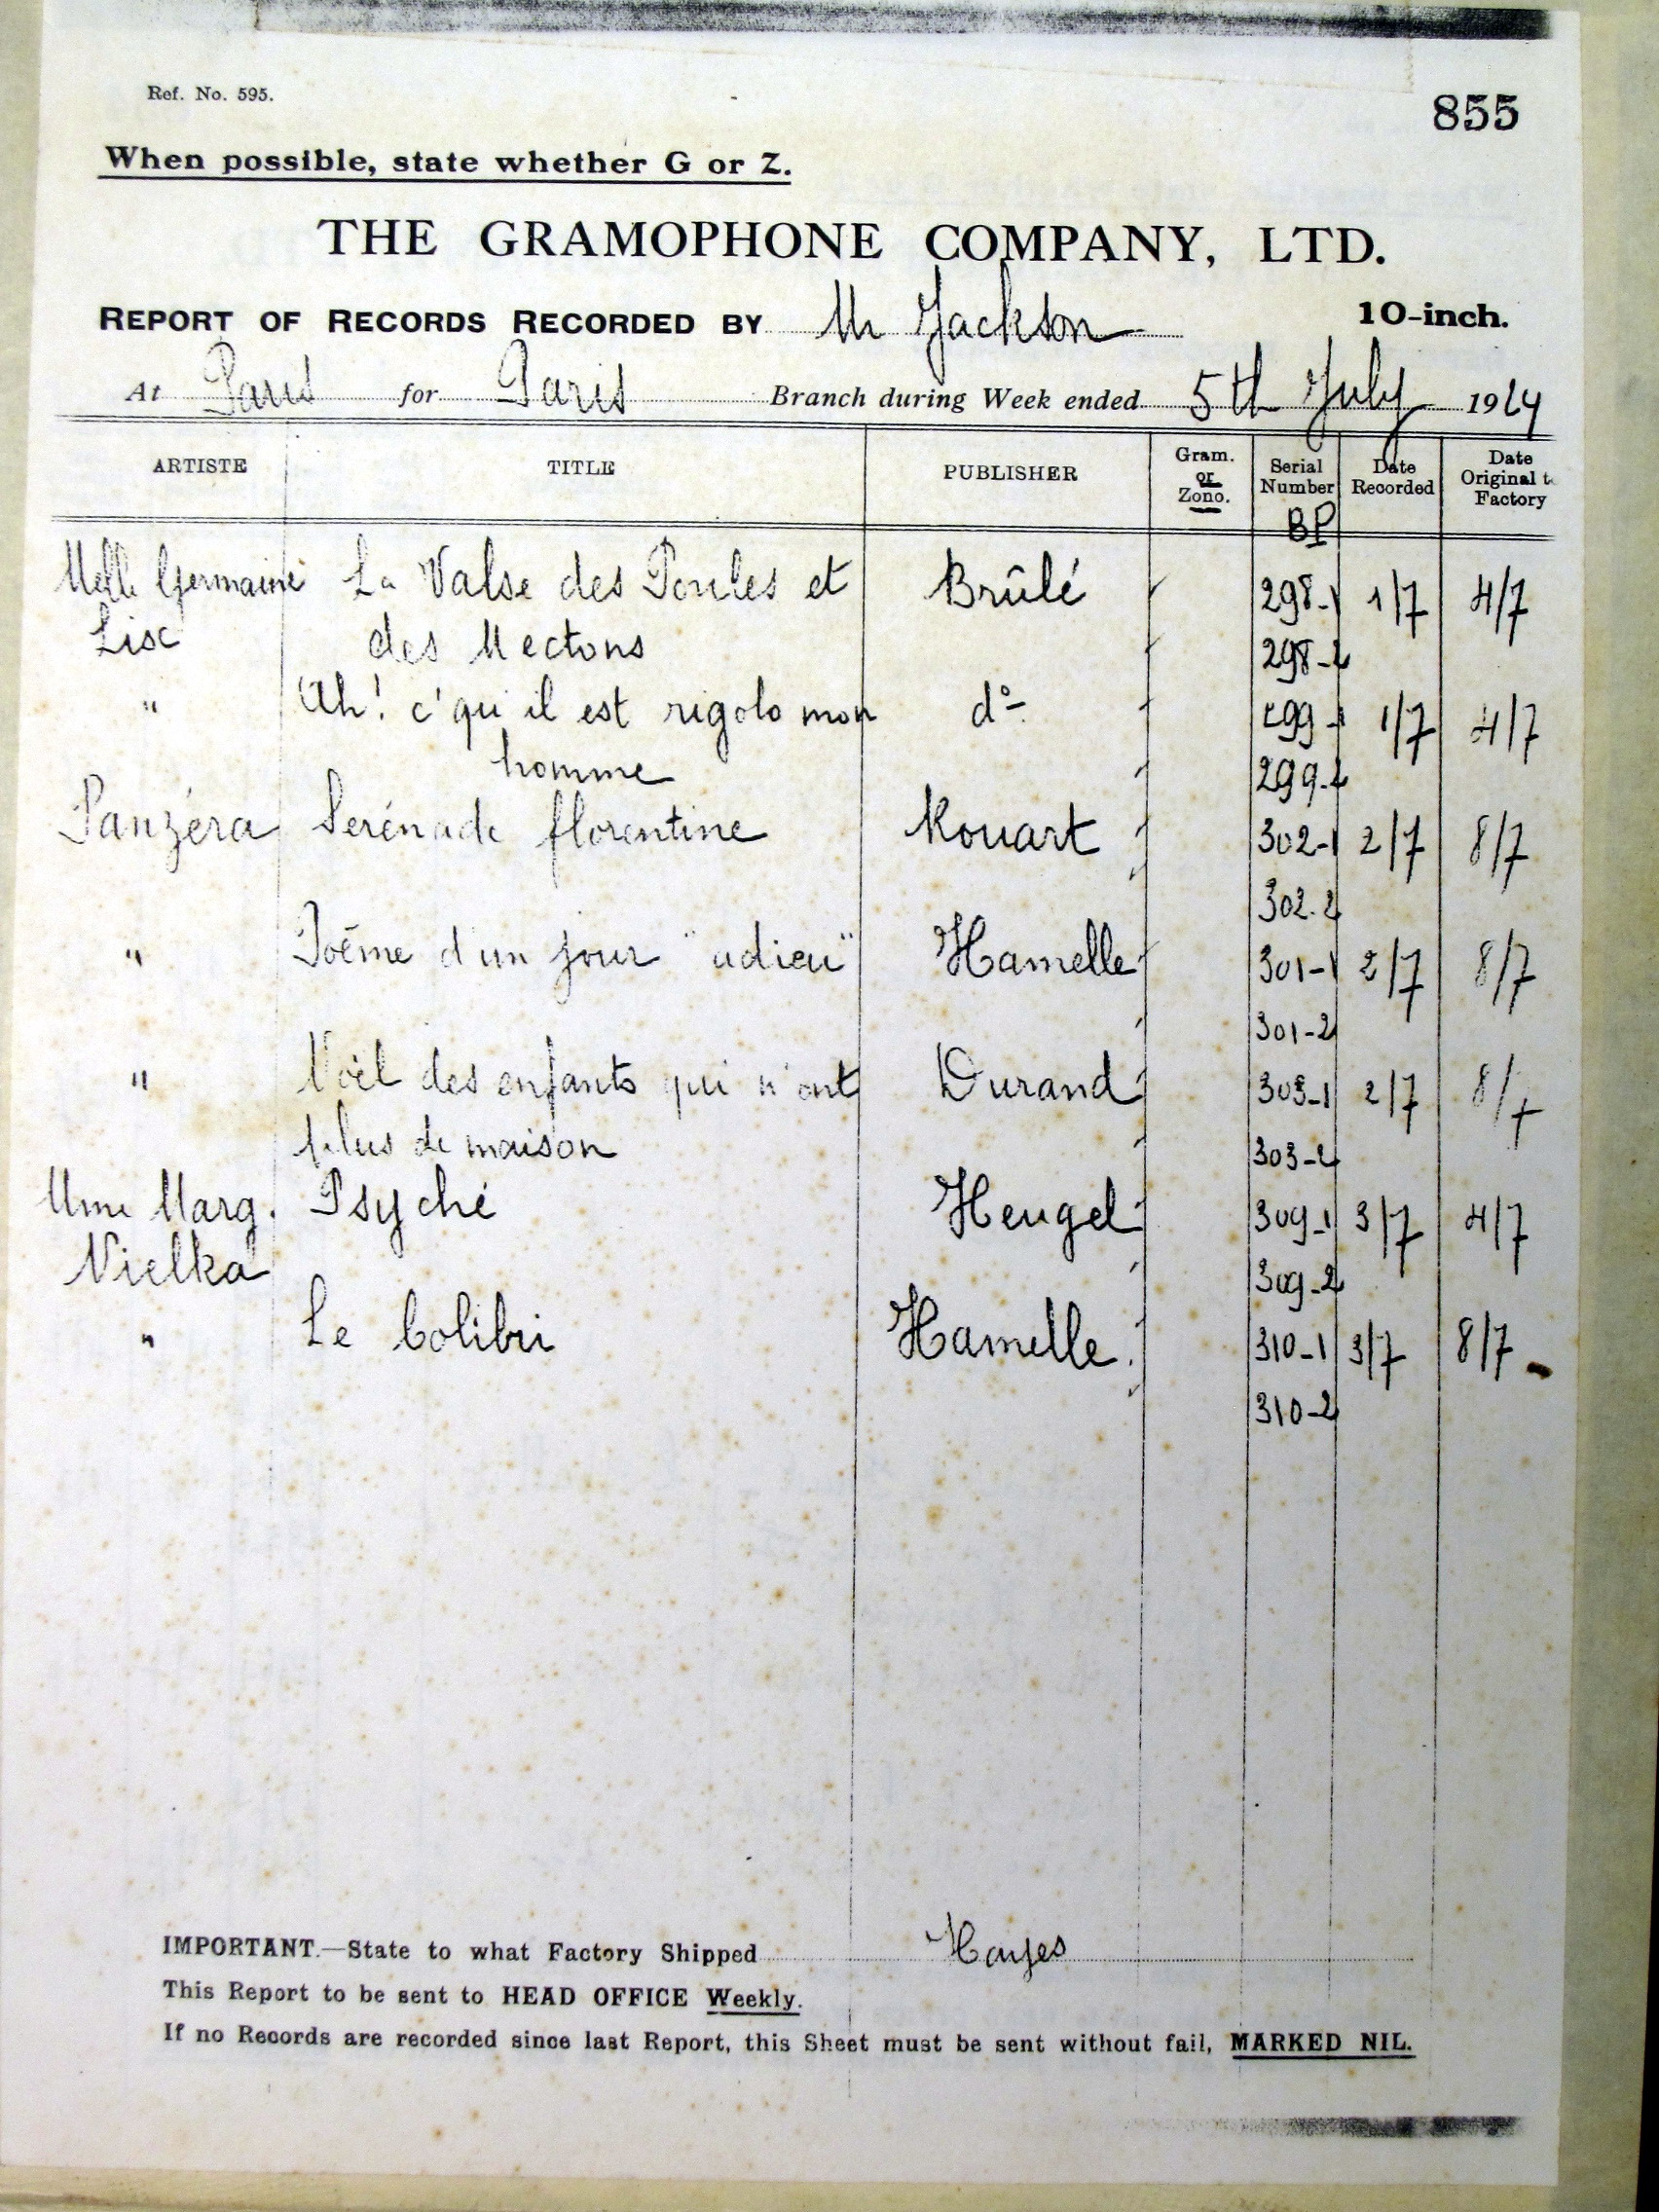 Ref. No. 595.
855
When possible, state whether G or Z.
THE GRAMOPHONE COMPANY, LTD.
REPORT OF RECORDS RECORDED BY Mr Jackson 10-inch.
At Paris for Paris Branch during Week ended 5th July 1924
ARTISTE TITLE PUBLISHER Gram. or Zono. Serial Number Date Recorded Date Original t Factory
BP
Melle Germaine La Valse des Poules et Brûlé 298-1 1/7 4/7
Lise des Mectons 298-2
" Ah! c'qu'il est rigolo mon d° 299-1 1/7 4/7
homme 299-2
Panzéra Serénade florentine Rouart 302-1 2/7 8/7
302-2
" Poème d'un jour "adieu" Hamelle 301-1 2/7 8/7
301-2
" Noël des enfants qui n'ont Durand 303-1 2/7 8/7
plus de maison 303-2
Mme Marg. Psyché Heugel 309-1 3/7 4/7
Nielka 309-2
" Le Colibri Hamelle. 310-1 3/7 8/7
310-2
IMPORTANT.—State to what Factory Shipped Hayes
This Report to be sent to HEAD OFFICE Weekly.
If no Records are recorded since last Report, this Sheet must be sent without fail, MARKED NIL.